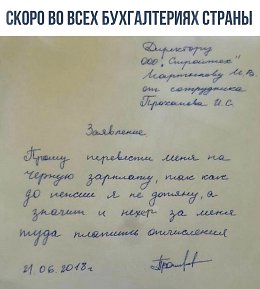 СКОРО ВО ВСЕХ БУХГАЛТЕРИЯХ СТРАНЫ
Директору
ООО "Стройтех"
Мартынову М.В.
от сотрудника
Проханова И.С.
Заявление
Прошу перевести меня на
черную зарплату, так как
до пенсии я не дотяну, а
значит и нехер за меня
туда платить отчисления
21.06.2018г